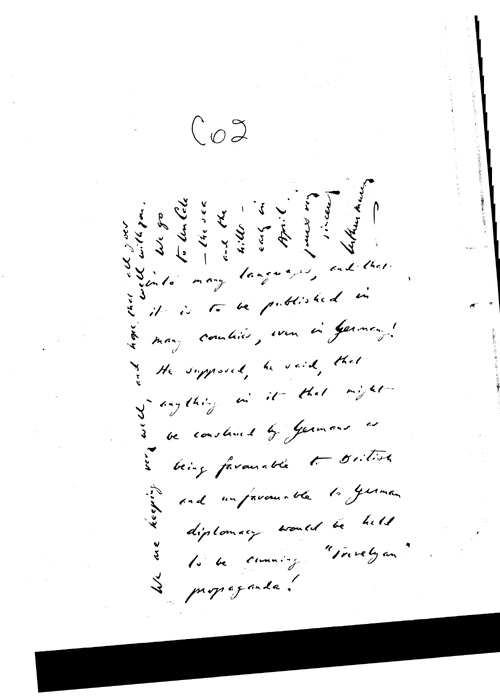 Co2
into many languages, and that
it is to be published in
many countries, even in Germany!
He supposed, he said, that
anything in it that might
be construed by Germans as
being favourable to British
and unfavourable to German
diplomacy would be held
to be cunning "Trevelyan"
propaganda!
We are keeping very well, and hope that all goes
well with you.
We go
to
— the sea
and the
hills —
early in
April.
yours very
sincerely
Arthur Murray